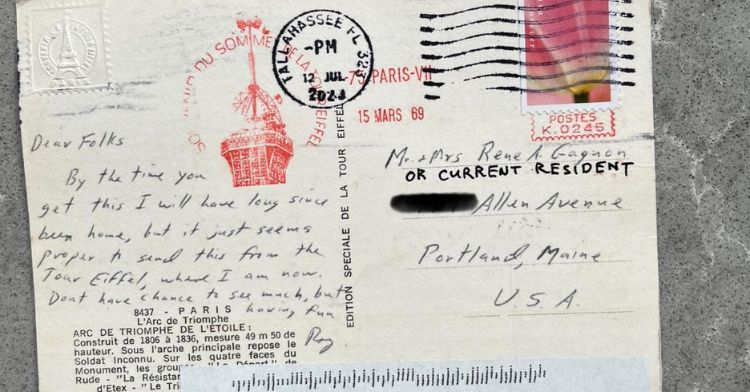 SOUVENIR DU SOMMET DE LA TOUR EIFFEL
TALLAHASSEE FL 323
-PM
12 JUL
2023
75 PARIS-VII
15 MARS 69
POSTES
K.0245
Dear Folks
By the time you
get this I will have long since
been home, but it just seems
proper to send this from the
Tour Eiffel, where I am now.
Dont have chance to see much, but
having fun
Roy
EDITION SPECIALE DE LA TOUR EIFFEL
Mr. & Mrs Rene A. Gagnon
OR CURRENT RESIDENT
Allen Avenue
Portland, Maine
U.S.A.
8437 - PARIS
L'Arc de Triomphe
ARC DE TRIOMPHE DE L'ETOILE:
Construit de 1806 à 1836, mesure 49 m 50 de
hauteur. Sous l'arche principale repose le
Soldat Inconnu. Sur les quatre faces du
Monument, les "Le Départ" de
Rude - "La
d'Etex - "Le